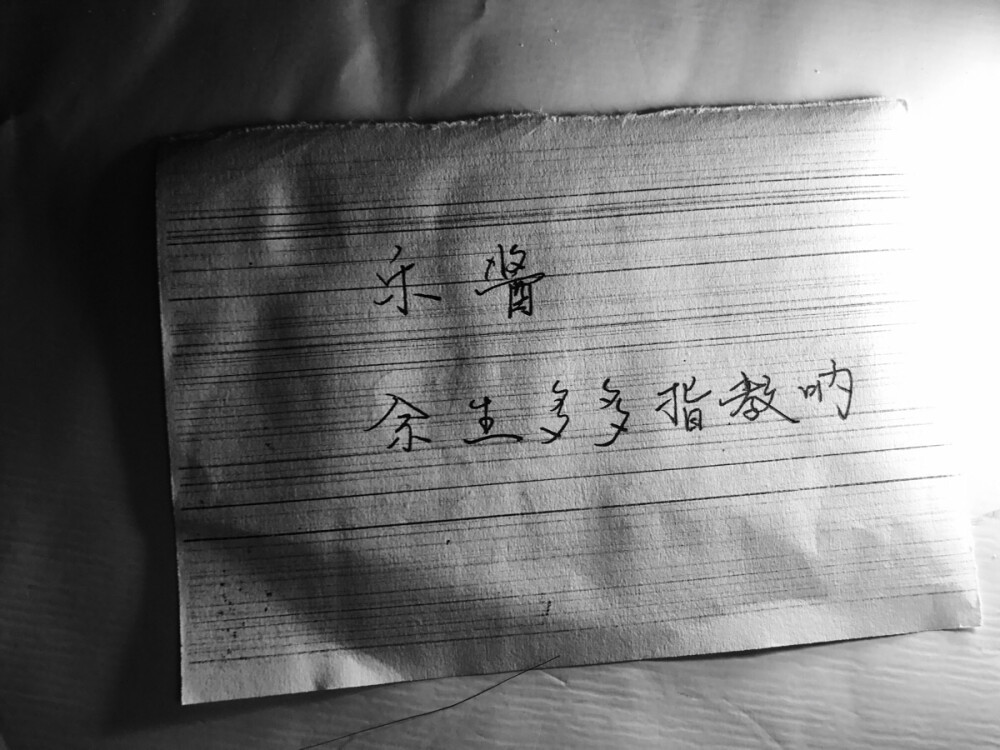 乐酱
余生多多指教呐